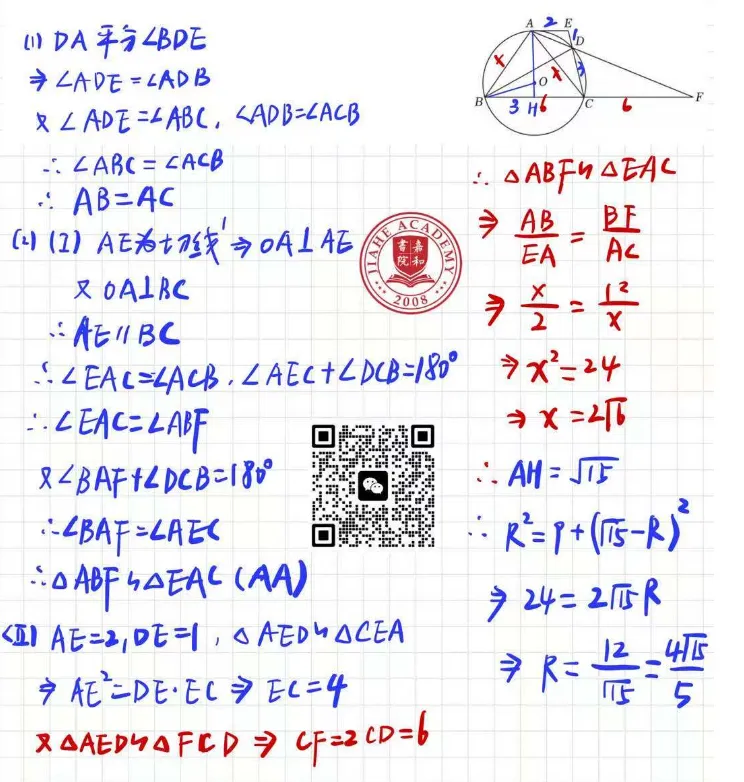 (1) DA 平分∠BDE
⇒ ∠ADE=∠ADB
又 ∠ADE=∠ABC, ∠ADB=∠ACB
∴ ∠ABC=∠ACB
∴ AB=AC
(2) (I) AE为切线 ⇒ OA⊥AE
又 OA⊥BC
∴ AE∥BC
∴ ∠EAC=∠ACB, ∠AEC+∠DCB=180°
∴ ∠EAC=∠ABF
又∠BAF+∠DCB=180°
∴ ∠BAF=∠AEC
∴ △ABF∽△EAC (AA)
(II) AE=2, DE=1, △AED∽△CEA
⇒ AE²=DE·EC ⇒ EC=4
又 △AED∽△FCD ⇒ CF=2CD=6
A 2 E
1 D
x x 3
O
B 3 H 6 C 6 F
∴ △ABF∽△EAC
⇒ AB/EA = BF/AC
⇒ x/2 = 12/x
⇒ x²=24
⇒ x=2√6
∴ AH=√15
∴ R²=9+(√15-R)²
⇒ 24=2√15R
⇒ R=12/√15=4√15/5
JIAHE ACADEMY
書嘉
院和
2008